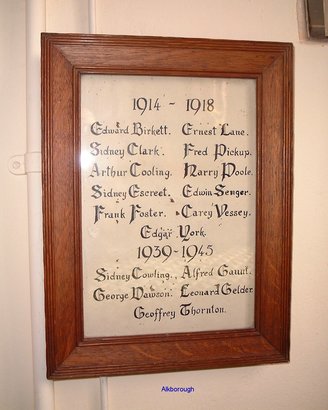 1914 - 1918
Edward Birkett. Ernest Lane.
Sidney Clark. Fred Pickup.
Arthur Cooling. Harry Poole.
Sidney Escreet. Edwin Senger.
Frank Foster. Carey Vessey.
Edgar York.
1939-1945
Sidney Cowling. Alfred Gauit.
George Dawson. Leonard Gelder.
Geoffrey Thornton.
Alkborough